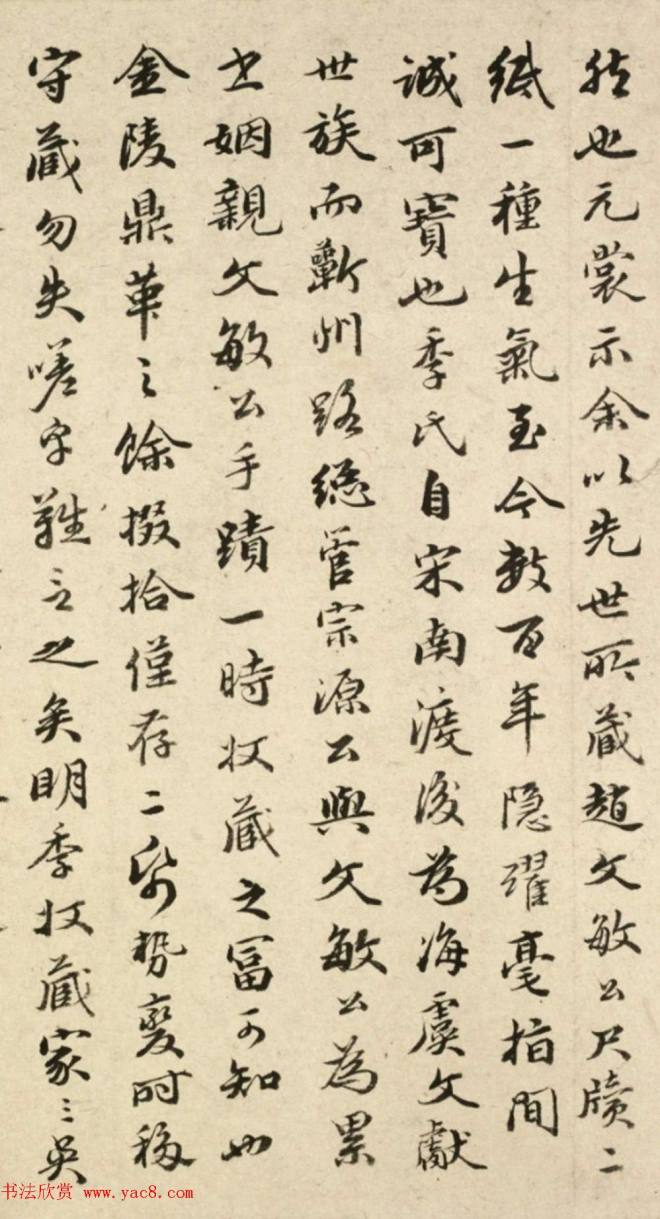 然也元裳示余以先世所藏趙文敏公尺牘二
紙一種生氣至今數百年隐躍毫指間
誠可寶也季氏自宋南渡後為海虞文獻
世族而蘄州路總管宗源公與文敏公為累
世姻親文敏公手蹟一時收藏之冨可知如
金陵鼎革之餘掇拾僅存二紙勢變時移
守藏勿失嗟乎難言之矣明季收藏家三吳
书法欣赏 www.yac8.com